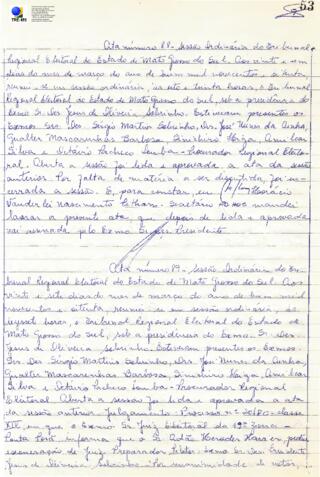 TRE-MS
53
Ata número 18. Sessão Ordinária do Tribunal
Regional Eleitoral do Estado de Mato Grosso do Sul. Aos vinte e
dias do mês de março do ano de hum mil novecentos e oitenta,
reuniu-se em sessão ordinária, às horas, o Tribunal
Regional Eleitoral do Estado de Mato Grosso do Sul, sob a presidência do
Exmo Sr. Des. Jesus de Oliveira Sobrinho. Estiveram presentes os
Exmos Srs. Des. Sérgio Martins Sobrinho, Drs. José Nunes da Cunha,
Gualter Mascarenhas Barbosa,
Silva e Pacheco Procurador Regional Eleito-
ral. Aberta a sessão foi lida e aprovada a ata da sessão
anterior. Por falta de matéria a ser discutida, foi en-
cerrada a sessão. E, para constar, eu Horácio
Vanderlei Nascimento Secretário mandei
lavrar a presente ata, que depois de lida e aprovada
vai assinada pelo Exmo Sr. Presidente.
Ata número 19. Sessão Ordinária do Tri-
bunal Regional Eleitoral do Estado de Mato Grosso do Sul. Aos
vinte e sete dias do mês de março do ano de hum mil
novecentos e oitenta, reuniu-se em sessão ordinária, às
horas, o Tribunal Regional Eleitoral do Estado de
Mato Grosso do Sul, sob a presidência do Exmo. Sr. Des.
Jesus de Oliveira Sobrinho. Estiveram presentes os Exmos
Srs. Des. Sérgio Martins Sobrinho, Drs. José Nunes da Cunha,
Gualter Mascarenhas Barbosa,
Silva e Pacheco Procurador Regional
Eleitoral. Aberta a sessão foi lida e aprovada a ata
da sessão anterior. Julgamento: Processo nº classe
XII, em que o Exmo Sr. Juiz Eleitoral da 19ª Zona -
Ponta Porã, informa que o Sr. Adão pediu
exoneração de Juiz Preparador. Relator: Exmo Sr. Des. Presidente
Jesus de Oliveira Sobrinho. Por unanimidade de votos,